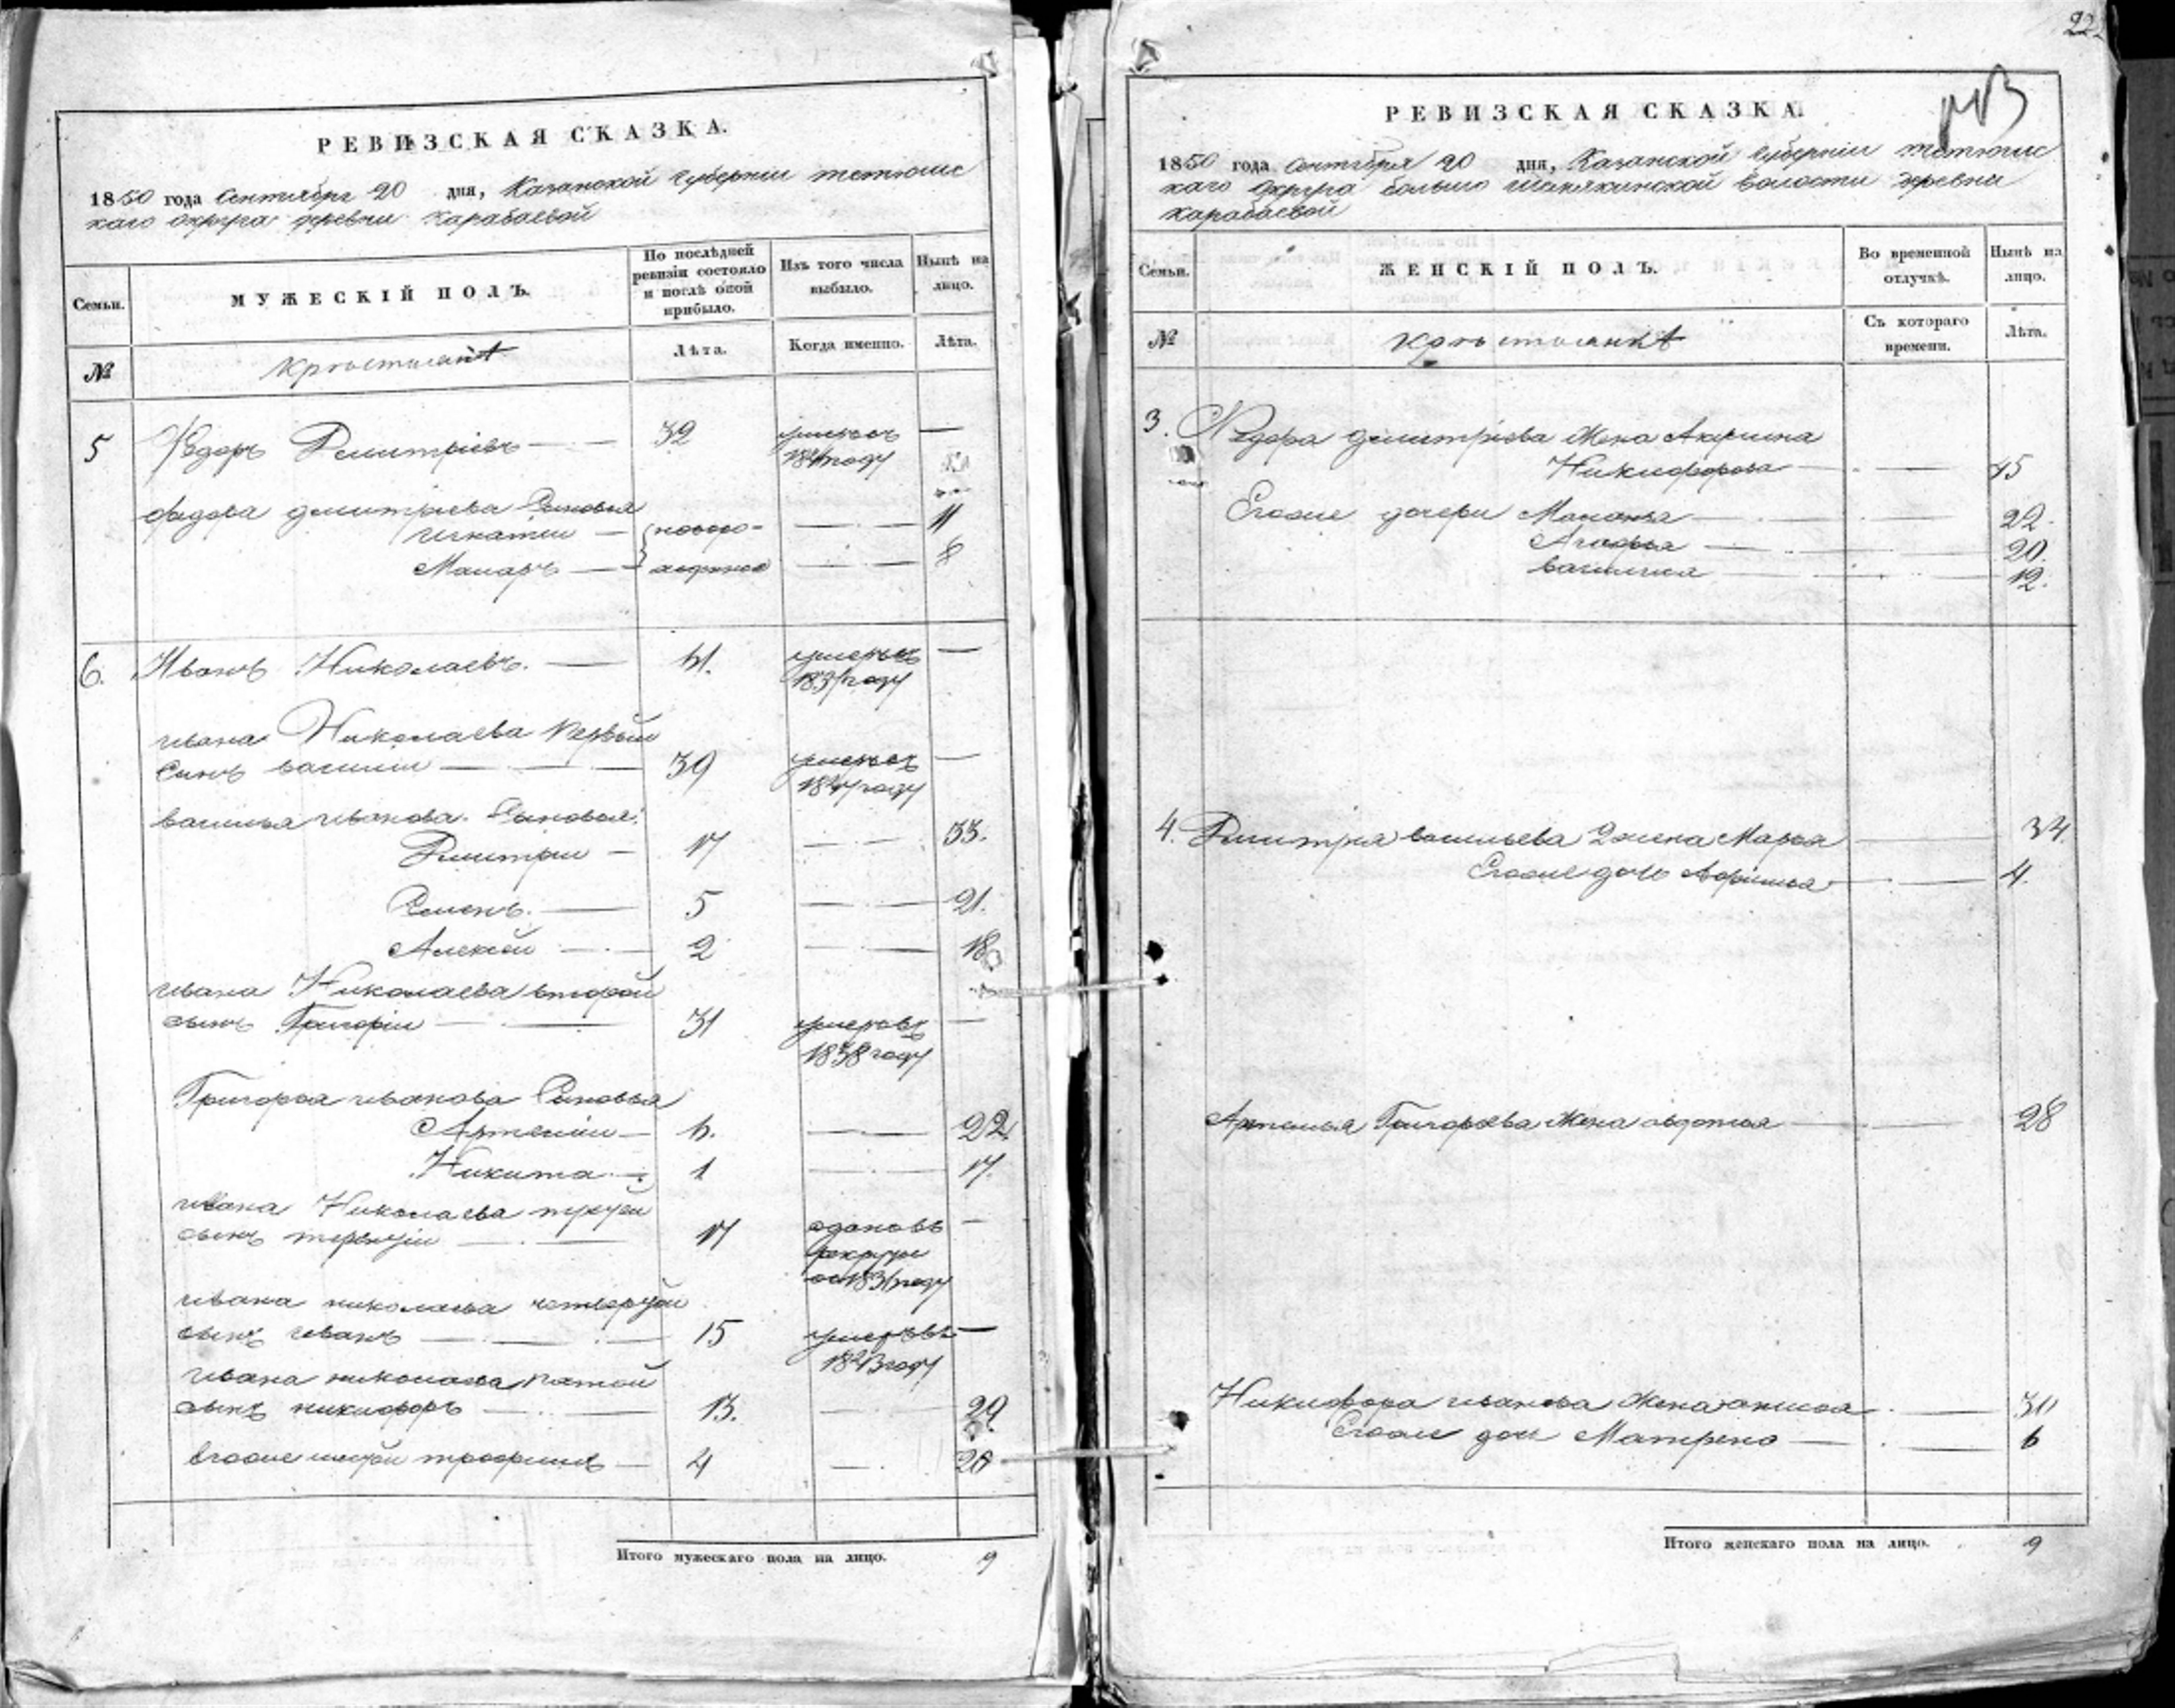 РЕВИЗСКАЯ СКАЗКА.
1850 года Сентября 20 дня, Казанской губернии тетюшс
каго округа деревни Карабаевой
Семьи.
МУЖЕСКІЙ ПОЛЪ.
По послѣдней
ревизіи состояло
и послѣ оной
прибыло.
Изъ того числа
выбыло.
Нынѣ на
лицо.
№
крестьянѣ
Лѣта.
Когда именно.
Лѣта.
5 Ѳедоръ Дмитріевъ — 32 умеръ —
году
Федора дмитріева Сыновья
игнатіи — новоро- — 11
Макаръ — — 8
6. Иванъ Николаевъ. — 61. умеръ —
183 году
ивана Николаева первый
Сынъ василіи — 39 умеръ —
184 году
василья иванова Сыновья:
Дмитри — 17 — 33.
Семенъ. — 5 — 21.
Алексѣй — 2 — 18
ивана Николаева второй
сынъ Григоріи — 31 умеръ —
1838 году
Григорья иванова Сыновья
Артеміи — 6. — 22.
Никита — 1 — 17.
ивана Николаева
сынъ — 17 отдановъ —
рекруты
183 году
ивана николаева
сынъ иванъ — 15 умеръ —
году
ивана николаева пятой
сынъ никифоръ — 13. — 29.
Егоже трофимъ — 4 — 20
Итого мужескаго пола на лицо. 9
22
РЕВИЗСКАЯ СКАЗКА.
1850 года Сентября 20 дня, Казанской губерніи тетюшс
каго округа больше шемякинской волости деревни
карабаевой
Семьи.
ЖЕНСКІЙ ПОЛЪ.
Во временной
отлучкѣ.
Нынѣ на
лицо.
№
крестьянкѣ
Съ котораго
времени.
Лѣта.
3. Ѳедора дмитріева Жена Акулина
Никифорова — 45
Егоже дочери Маланья — 22.
Агафья — 20.
василиса — 12.
4. Дмитрія васильева 2 жена Марья — 34.
Егоже дочь — 4.
Артемья Григорьева Жена авдотья — 28
Никифора иванова Жена анисья — 30
Егоже доч Матрена — 6
Итого женскаго пола на лицо. 9